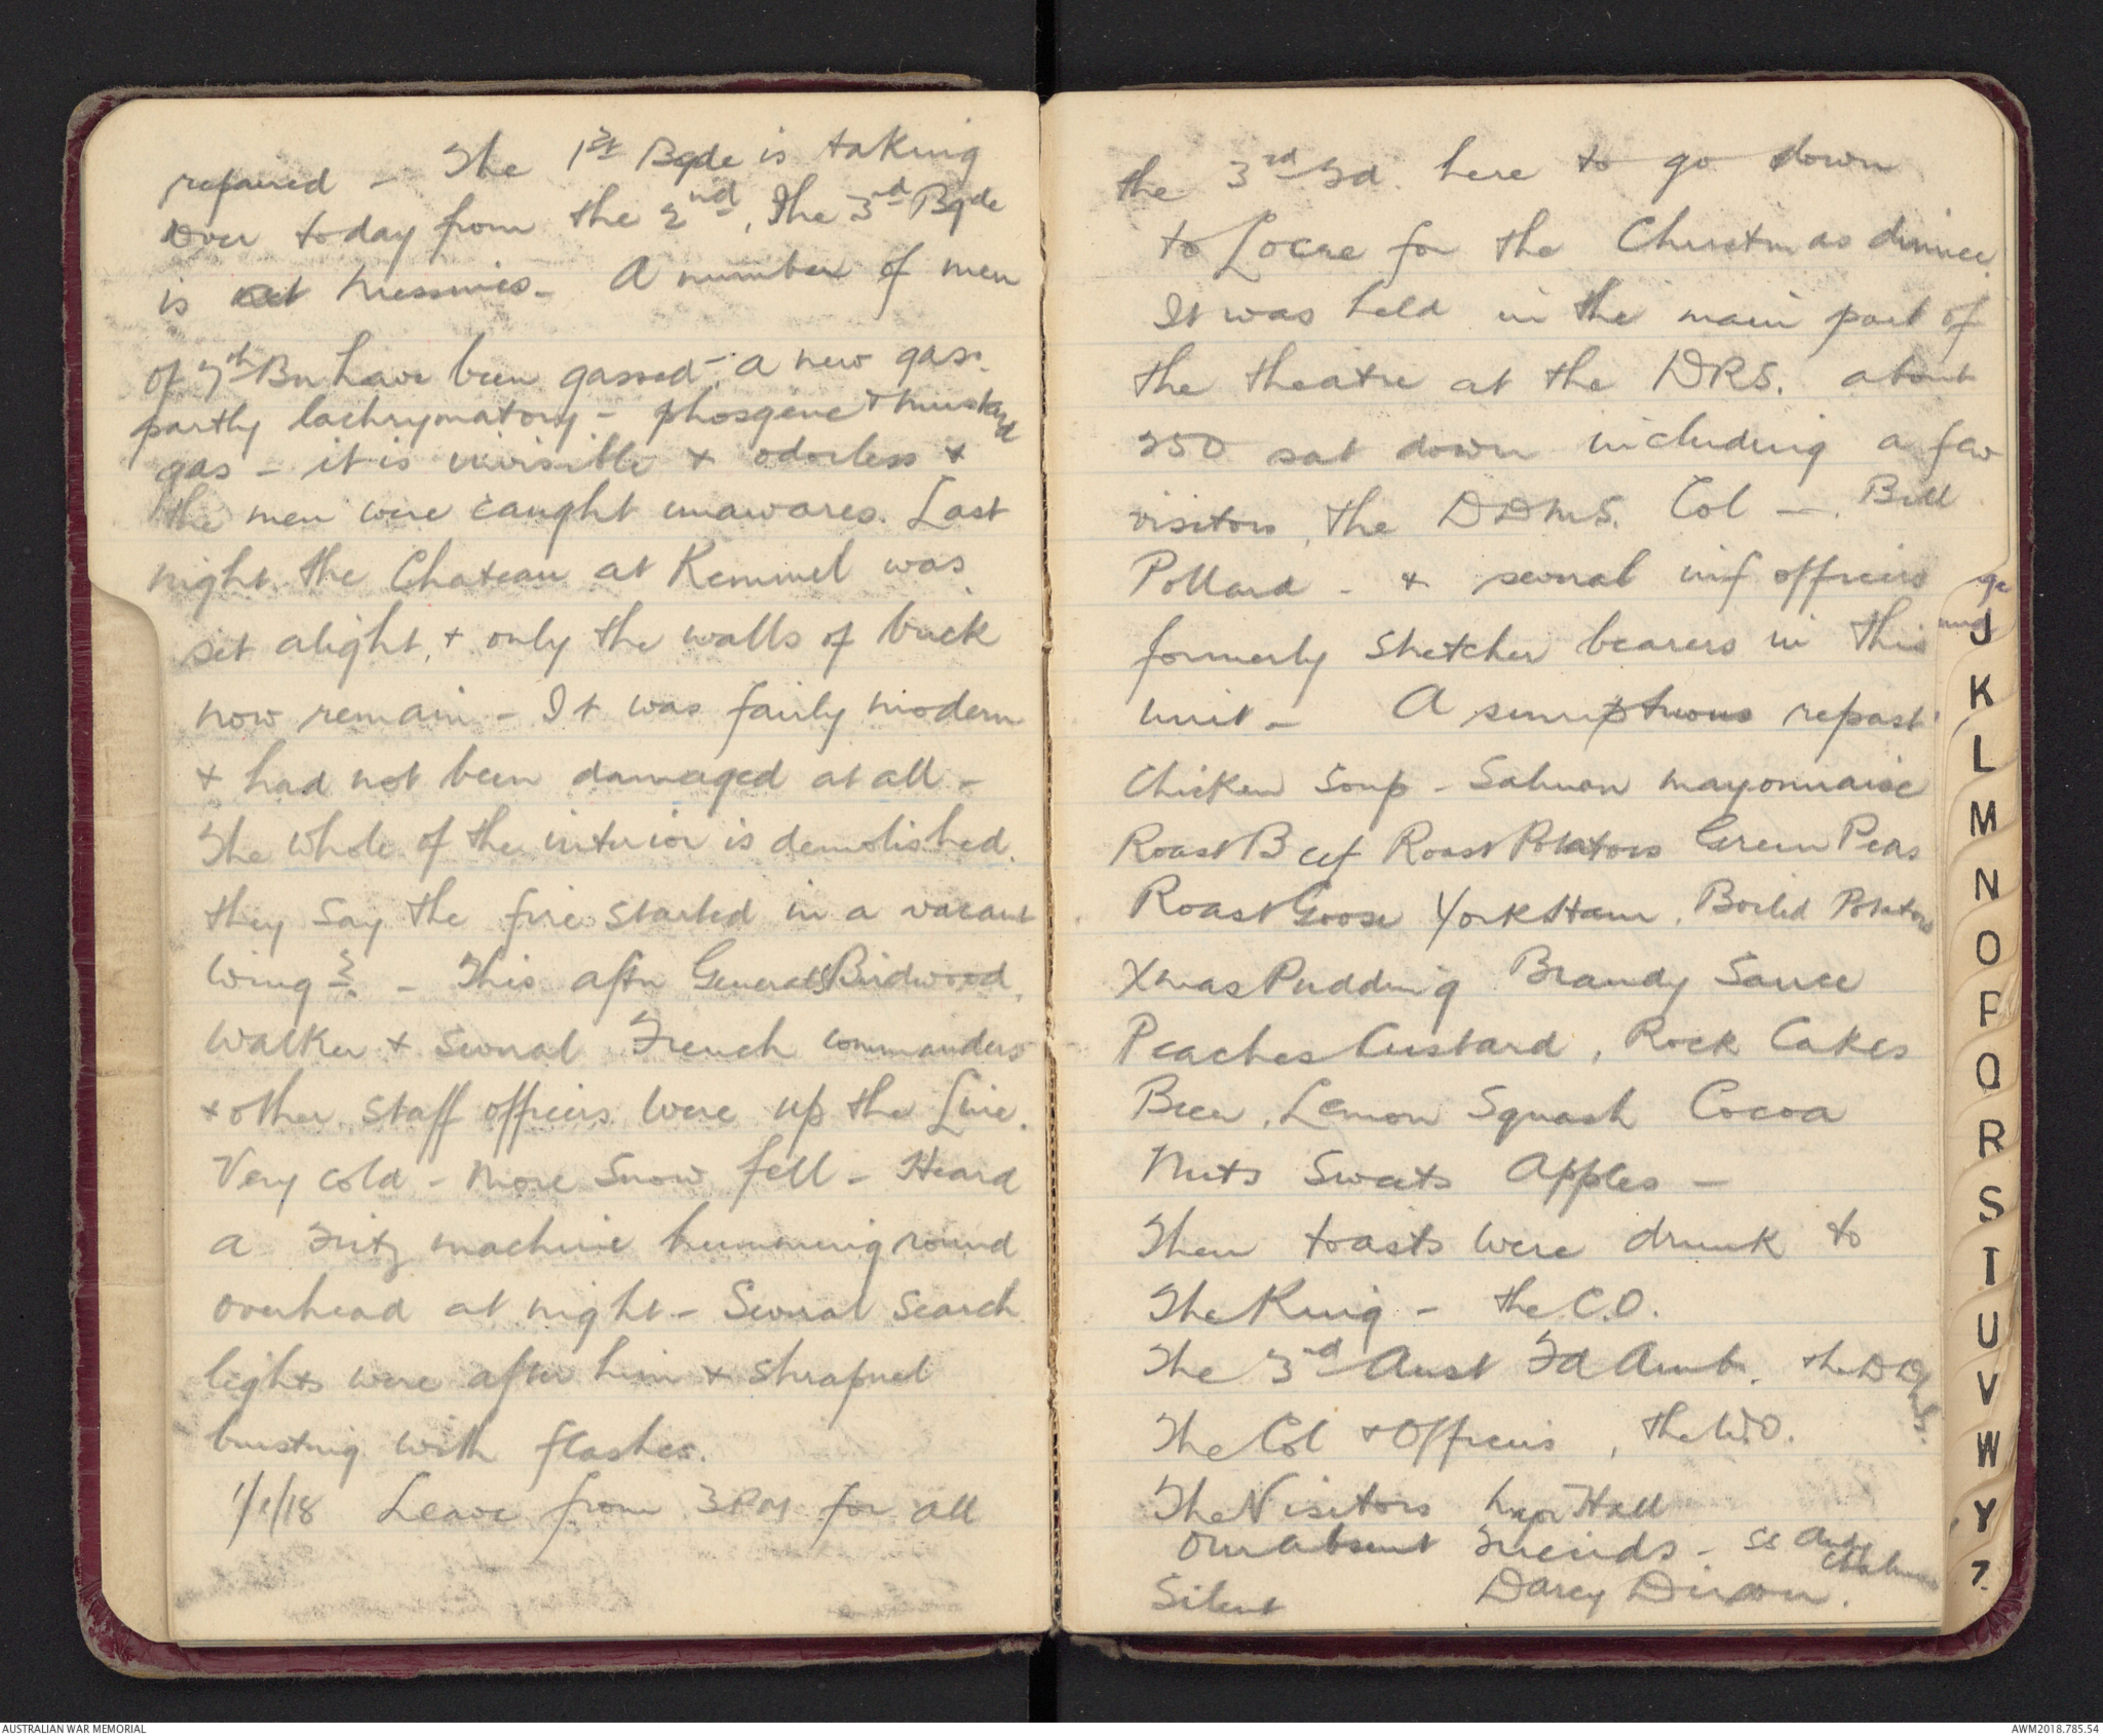 repaired - The 1st Bgde is taking
over today from the 2nd, The 3rd Bgde
is at Messines - A number of men
of 7th Bn have been gassed - a new gas.
partly lachrymatory - phosgene + mustard
gas - it is invisible + odorless +
the men were caught unawares. Last
night the Chateau at Kemmel was
set alight, + only the walls of brick
now remain - It was fairly modern
+ had not been damaged at all -
The whole of the interior is demolished.
they say the fire started in a vacant
wing ?. - This aftn Generals Birdwood,
Walker + several French commanders
+ other staff officers were up the Line.
Very cold - More Snow fell - Heard
a Fritz machine humming round
overhead at night - Several Search
lights were after him + shrapnel
bursting with flashes.
1/1/18 Leave from 3 PM for all
the 3rd Fd. here to go down
to Locre for the Christmas dinner.
It was held in the main part of
the theatre at the DRS. about
250 sat down including a few
visitors, the DDMS. Col -. Bill
Pollard - + several inf officers
formerly Stretcher bearers in this
unit - A sumptuous repast
Chicken Soup - Salmon mayonnaise
Roast Beef Roast Potatoes Green Peas
Roast Goose York Ham, Boiled Potatoes
Xmas Pudding Brandy Sauce
Peaches Custard, Rock Cakes
Beer, Lemon Squash Cocoa
Nuts Sweets Apples -
Then toasts were drunk to
The King - the C.O.
The 3rd Aust Fd Amb. the DDMS.
The Col + Officers, the W.O.
The Visitors Major Hall
Our absent Friends -
Silent Darcy Dixon.
J
K
L
M
N
O
P
Q
R
S
T
U
V
W
Y
Z
AUSTRALIAN WAR MEMORIAL
AWM2018.785.54